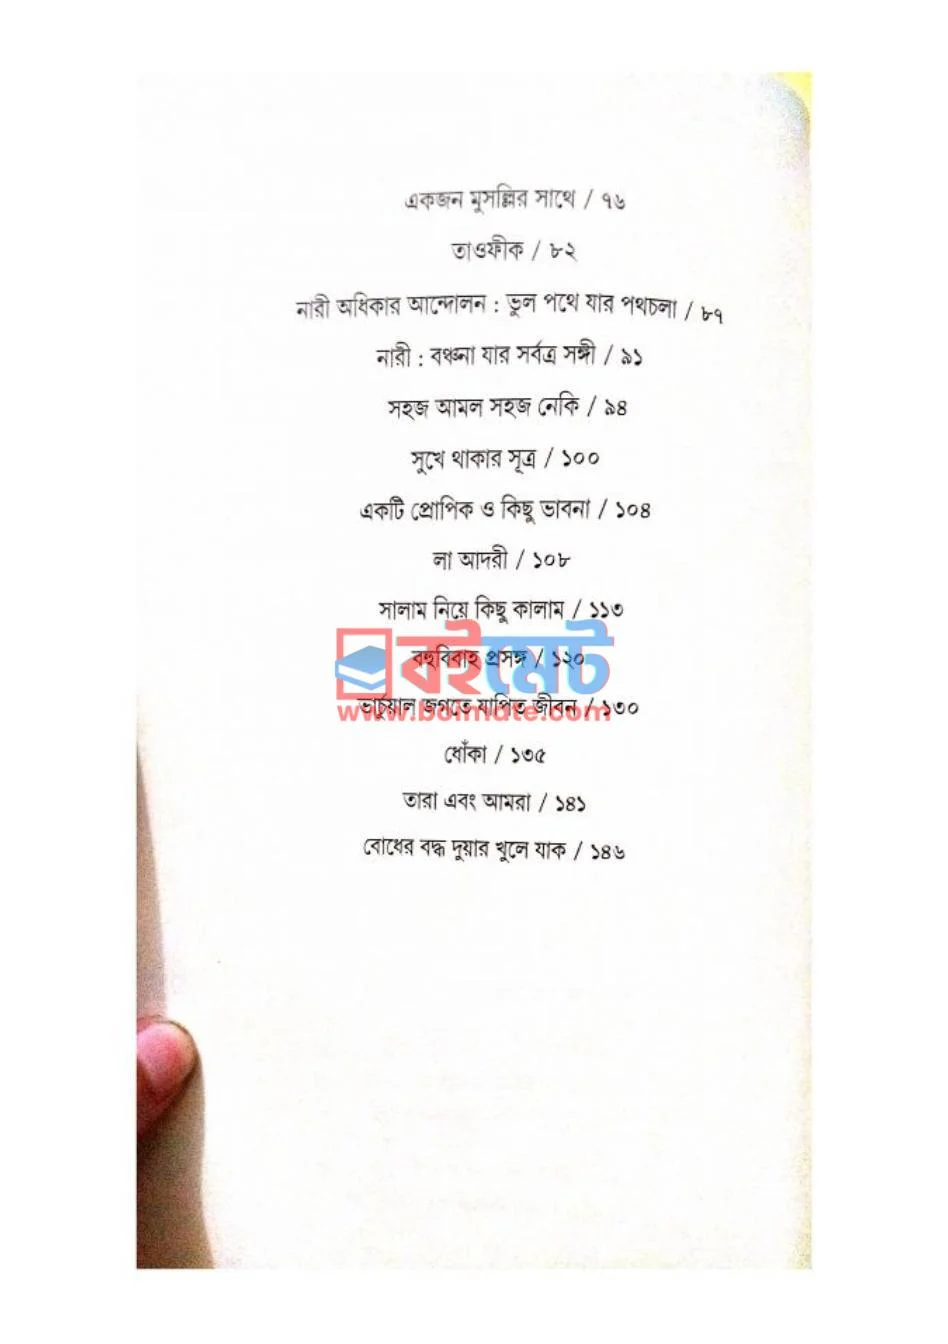 একজন মুসল্লির সাথে / ৭৬
তাওফীক / ৮২
নারী অধিকার আন্দোলন : ভুল পথে যার পথচলা / ৮৭
নারী : বঞ্চনা যার সর্বত্র সঙ্গী / ৯১
সহজ আমল সহজ নেকি / ৯৪
সুখে থাকার সূত্র / ১০০
একটি প্রোপিক ও কিছু ভাবনা / ১০৪
লা আদরী / ১০৮
সালাম নিয়ে কিছু কালাম / ১১৩
বহুবিবাহ প্রসঙ্গ / ১২০
বইমেট
ভার্চুয়াল জগতে যাপিত জীবন / ১৩০
www.boimate.com
ধোঁকা / ১৩৫
তারা এবং আমরা / ১৪১
বোধের বদ্ধ দুয়ার খুলে যাক / ১৪৬